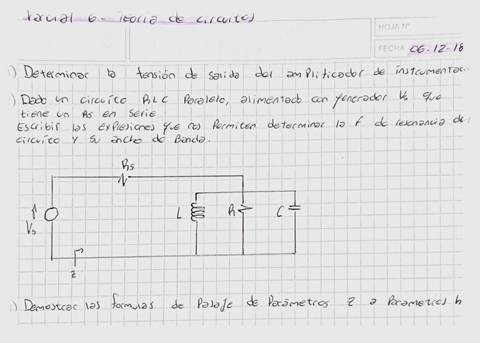 Parcial 6 - teoria de circuitos
HOJA N°
FECHA 06-12-18
) Determinar la tensión de salida del amplificador de instrumentac.
) Dado un circuito RLC Paralelo, alimentado con generador Vs que
tiene un Rs en serie
Escribir las expresiones que nos permiten determinar la f de resonancia del
circuito y su ancho de Banda.
Rs
Vs
L
R
C
Z
) Demostrar las formulas de Pasaje de Parámetros Z a Parametros h